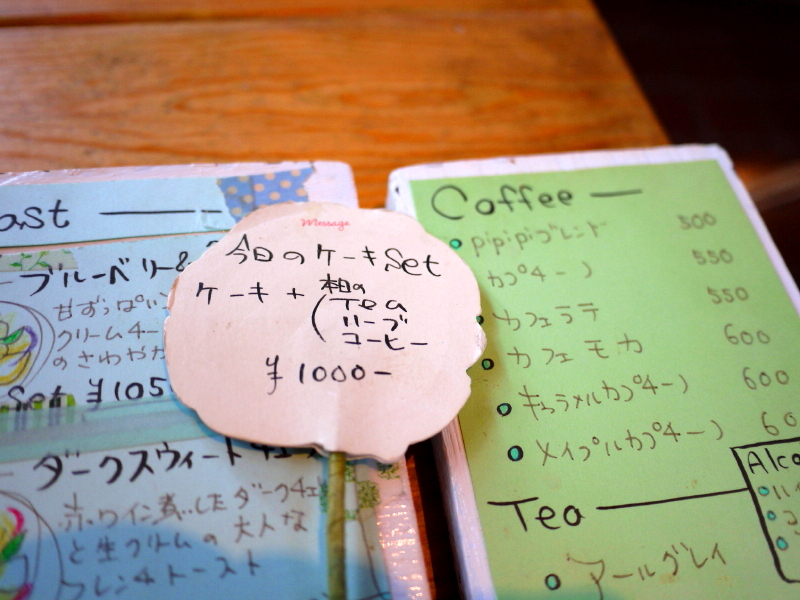 ast
ブルーベリー&
甘ずっぱい
クリームチー
のさわやか
Set ¥105
ダークスウィート
赤ワイン煮
と生クリームの大人な
フレンチトースト
Message
今日のケーキSet
ケーキ + 本日の
Tea
ハーブ
コーヒー
¥1000-
Coffee
pipipiブレンド 500
カプチーノ 550
カフェラテ 550
カフェモカ 600
キャラメルカプチーノ 600
メイプルカプチーノ 60
Alco
Tea
アールグレイ